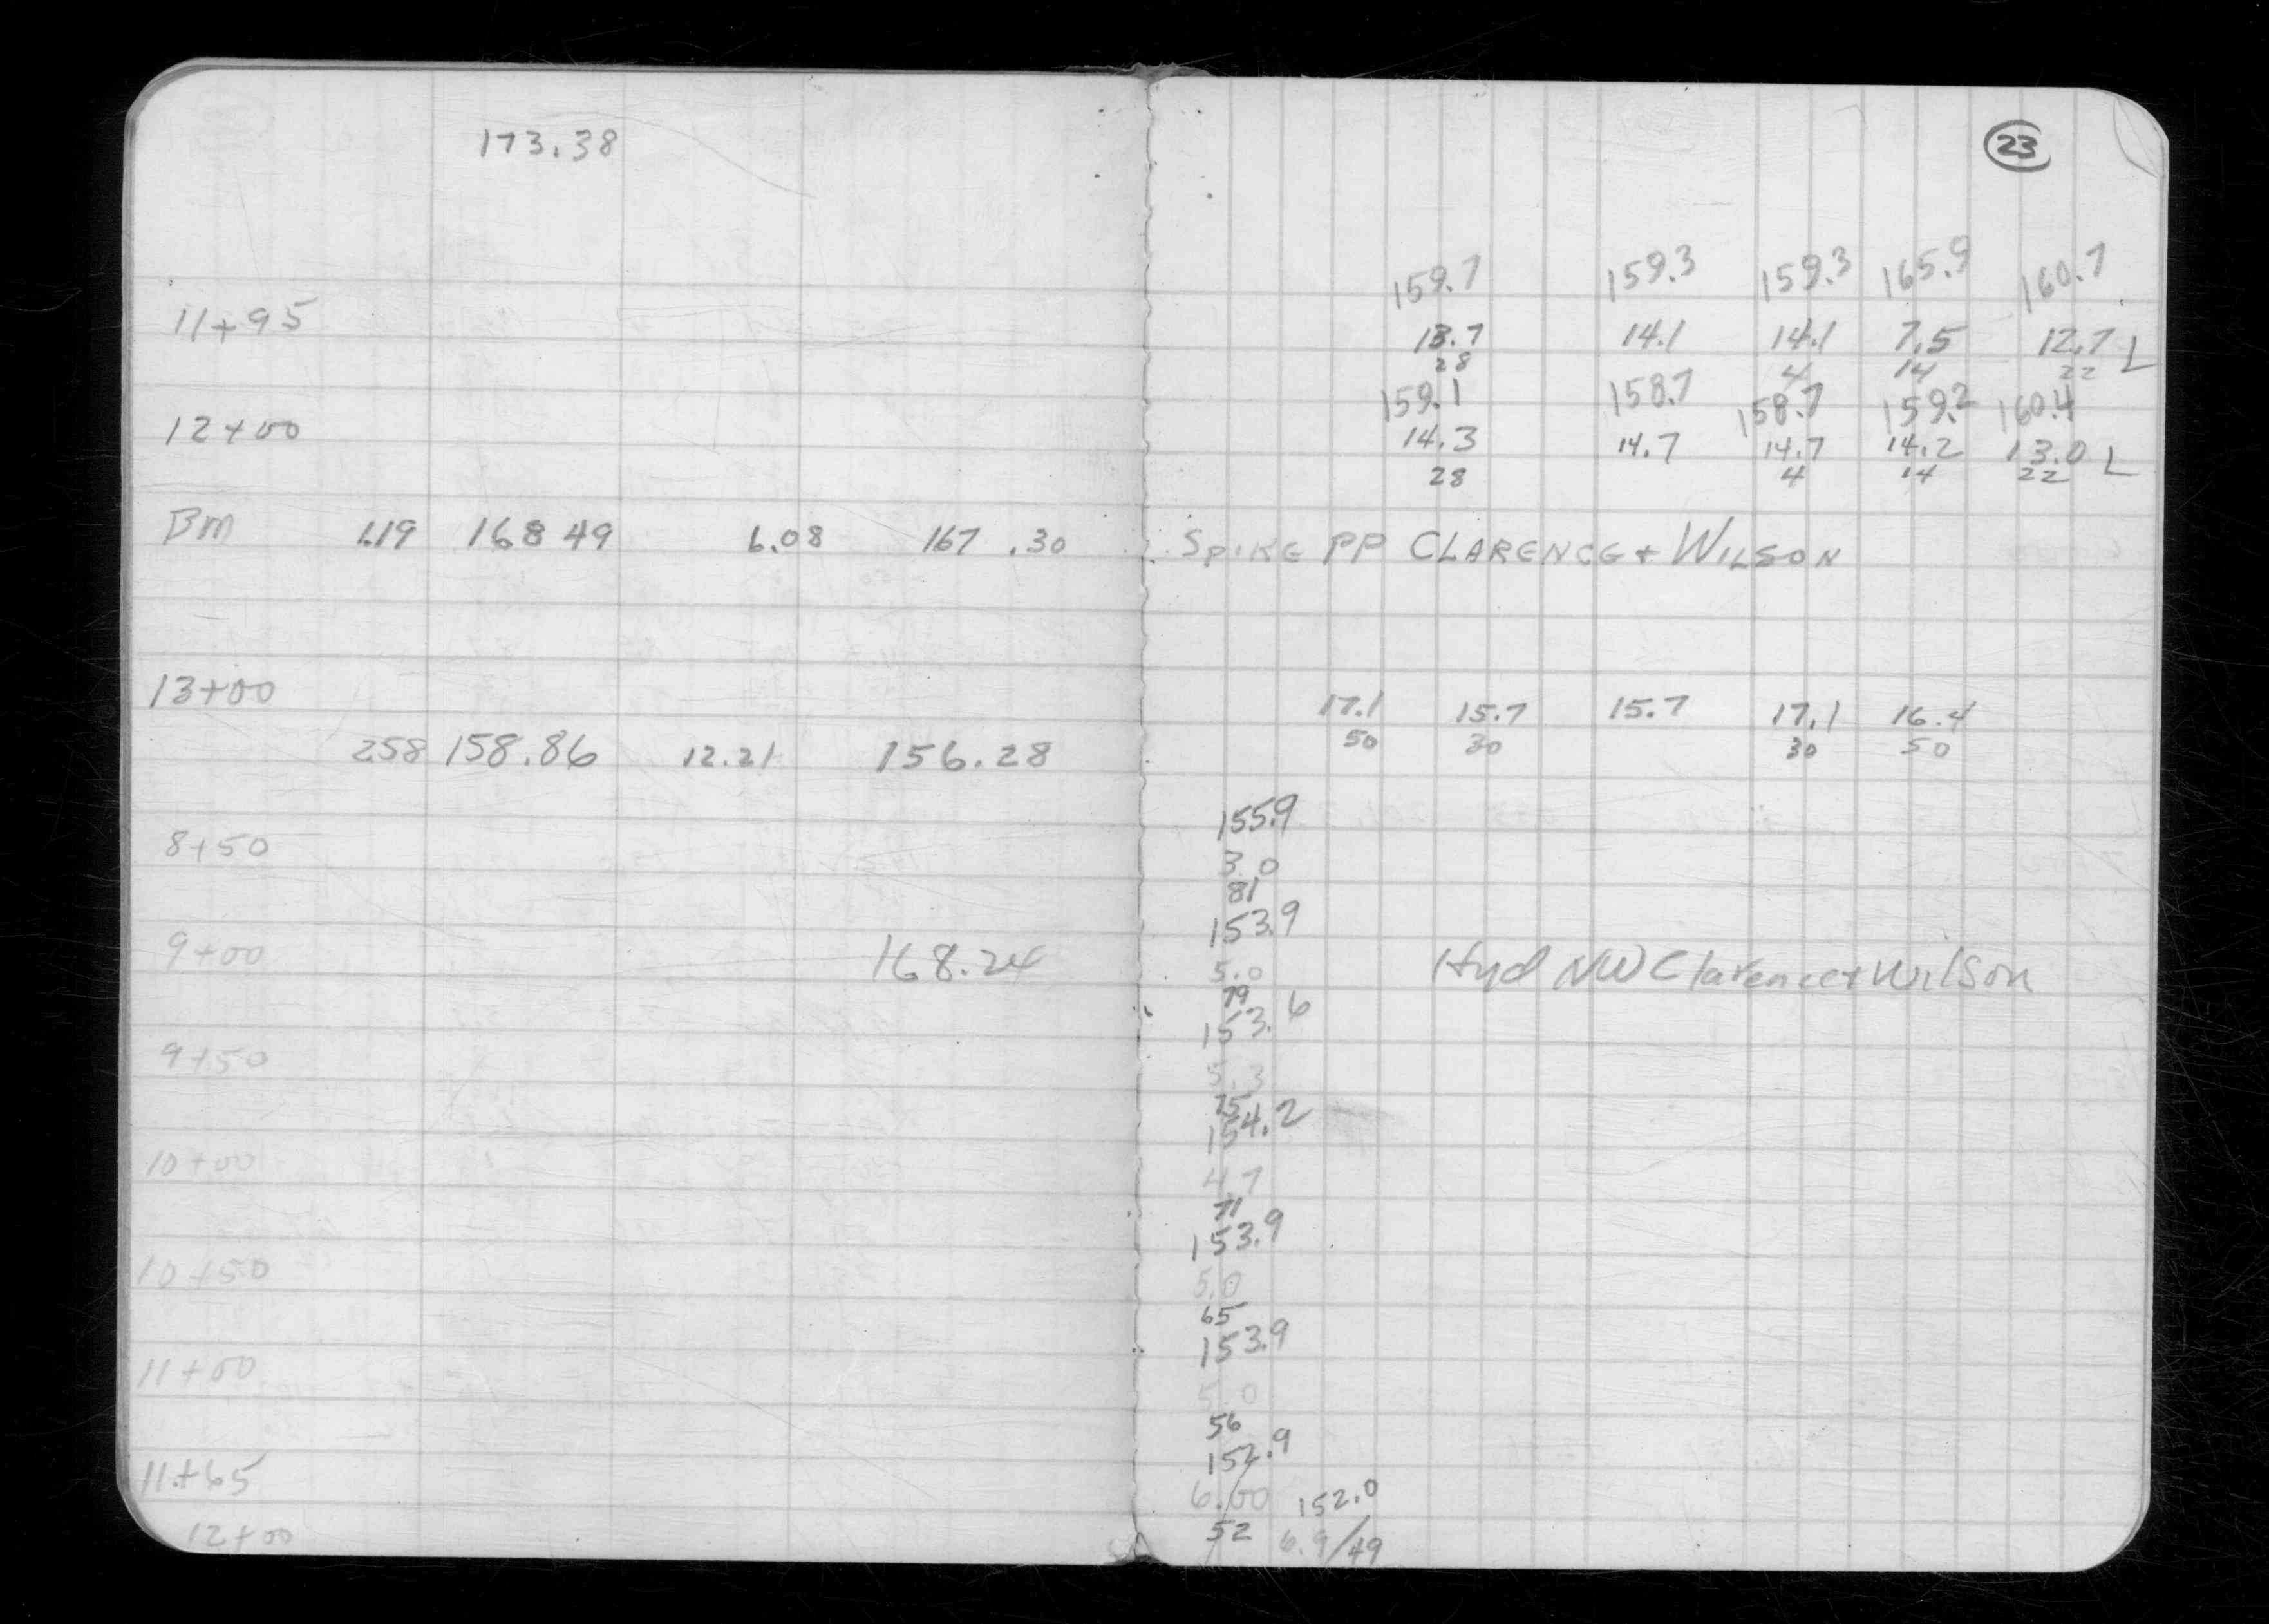 173.38
23
159.7 159.3 159.3 165.9 160.7
11+95 13.7 14.1 14.1 7.5 12.7 L
28 4 14 22
159.1 158.7 158.7 159.2 160.4
12+00 14.3 14.7 14.7 14.2 13.0 L
28 4 14 22
BM 1.19 168 49 6.08 167 .30 SPIKE PP CLARENCE + WILSON
13+00 17.1 15.7 15.7 17.1 16.4
50 30 30 50
258 158.86 12.21 156.28
155.9
8+50 3.0
81
153.9
9+00 168.24 5.0 Hyd NW Clarence + Wilson
79
153.6
9+50 5.3
75
154.2
10+00 4.7
71
153.9
10+50 5.0
65
153.9
11+00 5.0
56
152.9
11+65 6.00 152.0
12+00 52 6.9/49